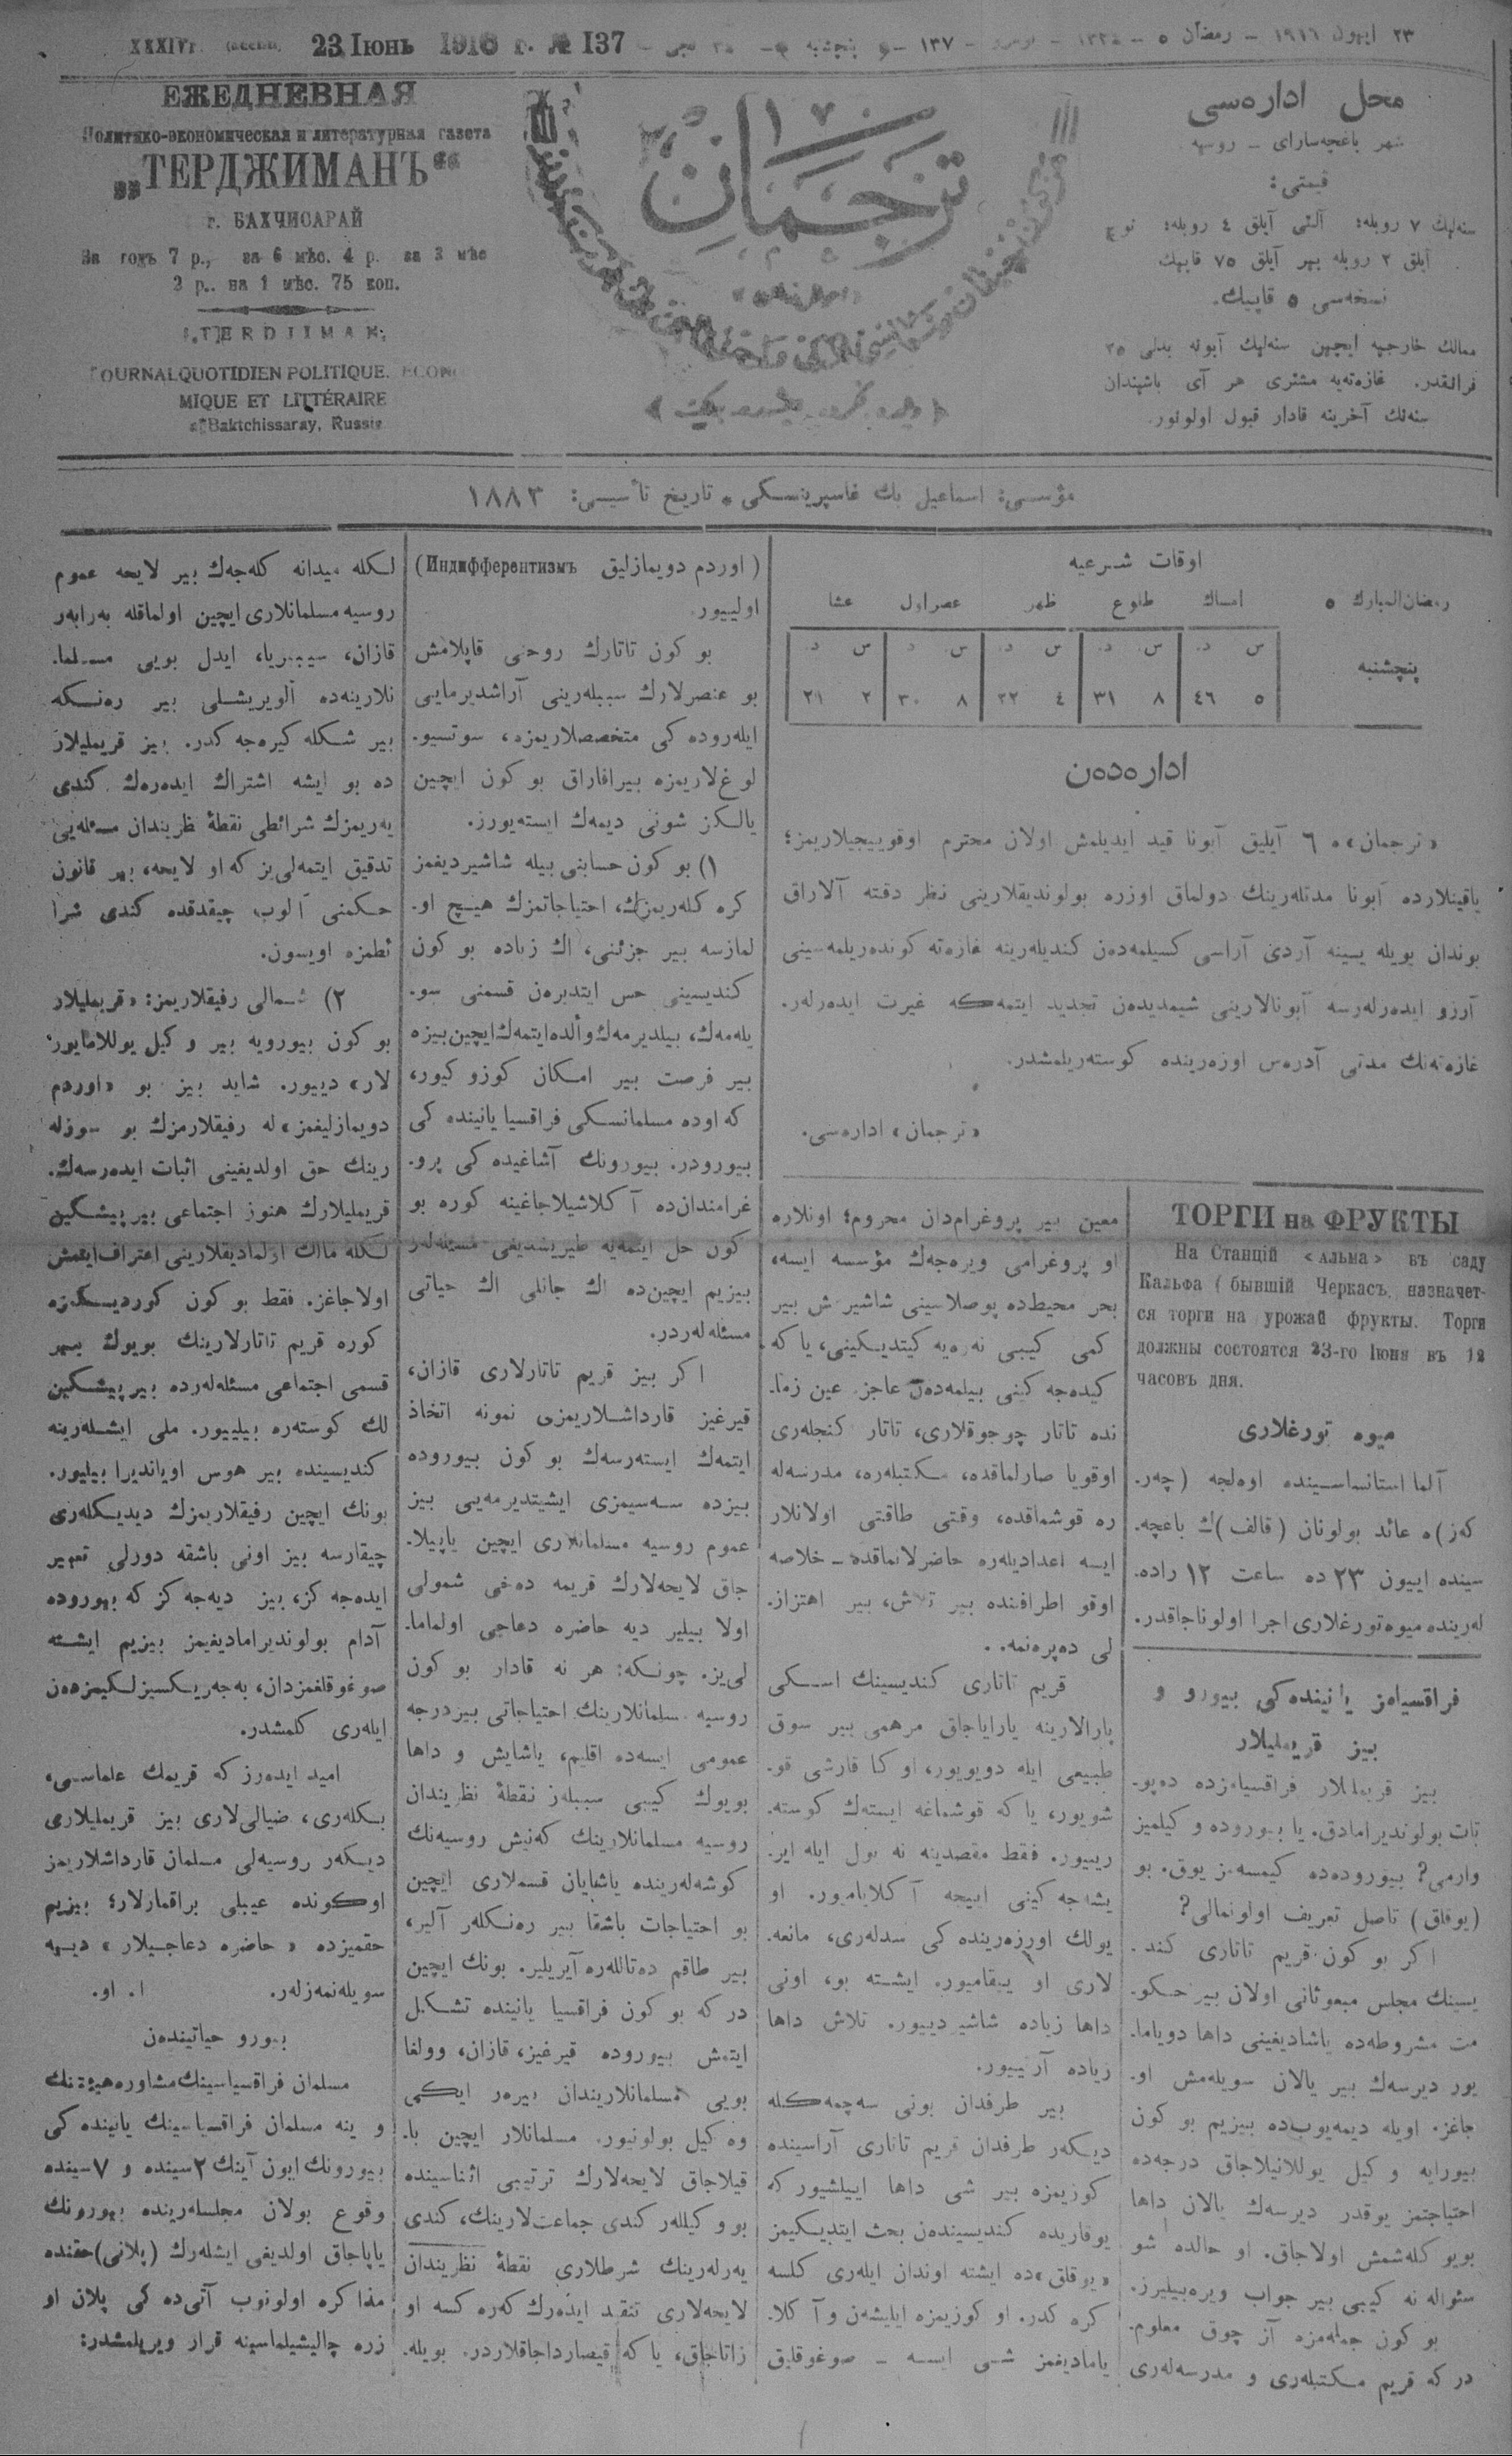 ٢٣ ایپون ١٩١٦ – رمضان ٥ – ١٣٣٤ – نومرو – ١٣٧ – پنجشنبه
23 Іюнь 1916 г. № 137
XXXIVг.
ЕЖЕДНЕВНАЯ
Политико-экономическая и литературная газета
„ТЕРДЖИМАНЪ“
г. БАХЧИСАРАЙ
На годъ 7 р., за 6 мѣс. 4 р. за 3 мѣс
2 р.. на 1 мѣс. 75 коп.
TERDJIMAN
JOURNAL QUOTIDIEN POLITIQUE. ECONO
MIQUE ET LITTÉRAIRE
Baktchissaray, Russie
ترجمان
محل اداره‌سی
شهر باغچه‌سارای – روسیه
قیمتی:
سنه‌لیك ٧ روبله؛ آلتی آیلق ٤ روبله؛ اوچ
آیلق ٢ روبله بیر آیلق ٧٥ قاپیك
نسخه‌سی ٥ قاپیك.
ممالك خارجیه ایچین سنه‌لیك آبونه بدلی ٢٥
فرانقدر. غازه‌ته‌یه مشتری هر آی باشیندان
سنه‌نك آخرینه قادار قبول اولونور.
مؤسسی: اسماعیل بك غاسپرینسکی • تاریخ تأسیسی: ١٨٨٣
اوقات شرعیه
رمضان‌المبارك ٥ امساك طلوع ظهر عصر اول عشا
س د. س. د. س د. س. د س د.
پنچشنبه ٥ ٤٦ ٨ ٣١ ٤ ٢٢ ٨ ٣٠ ٢ ٢١
اداره‌دەن
«ترجمان»ه ٦ آیلیق آبونا قید ایدیلمش اولان محترم اوقوییجیلاریمز؛
یاقینلارده آبونا مدتله‌رینك دولماق اوزره بولوندیقلارینی نظر دقته آلاراق
بوندان بویله یسینه آردی آراسی کسیلمه‌دەن کندیله‌رینه غازه‌ته کوندەریلمه‌سینی
آرزو ایدەرلەرسه آبونالارینی شیمدیدەن تجدید ایتمه‌که غیرت ایدەرلەر.
غازه‌ته‌نك مدتی آدرەس اوزەریندە کوستەریلمشدر.
«ترجمان» اداره‌سی.
ТОРГИ на ФРУКТЫ
На Станцій <Альма> въ саду
Кальфа (бывшій Черкасъ. назначет-
ся торги на урожай фрукты. Торги
должны состоятся 23-го Іюня въ 12
часовъ дня.
میوه تورغلاری
آلما استانساسینده اوه‌لجه (چەر.
کەز)ه عائد بولونان (قالف)ك باغچه.
سینده ایبون ٢٣ ده ساعت ١٢ راده.
له‌رینده میوه تورغلاری اجرا اولوناجاقدر.
فراقسیامز یانیندەکی بیورو و
بیز قریملیلار
بیز قریملیلار فراقسیامزده دەپو.
تات بولوندیرامادق. یا بیوروده وکیلمیز
وارمی؟ بیورودەده کیمسه‌مز یوق. بو
(یوقلق) ناصل تعریف اولونمالی؟
اکر بو کون قریم تاتاری کند.
یسینك مجلس مبعوثانی اولان بیر حکو.
مت مشروطەده یاشادیغینی داها دویاما.
یور دیرسەك بیر یالان سویلەمش او.
جاغز. اویله دیمه‌یوب‌ده بیزیم بو کون
بیورایه وکیل یوللانیلاجاق درجەده
احتیاجتمز یوقدر دیرسەك یالان داها
بویو کلەشمش اولاجاق. او حالده شو
سئواله نه کیبی بیر جواب ویرەبیلیرز.
بو کون جمله‌مزه آز چوق معلوم.
در که قریم مکتبلەری و مدرسەلەری
معین بیر پروغرام‌دان محروم؛ اونلاره
او پروغرامی ویرەجەك مؤسسه ایسه،
بحر محیطده پوصلاسینی شاشیرمش بیر
کمی کیبی نەرەیه کیتدیکینی، یا که
کیدەجه کینی بیلمەدەن عاجز. عین زما.
نده تاتار چوجوقلاری، تاتار کنجلەری
اوقویا صارلماقده، مکتبلەره، مدرسەله
ره قوشماقده، وقتی طاقتی اولانلار
ایسه اعدادیلەره حاضرلانماقده – خلاصه
اوقو اطرافنده بیر تلاش، بیر اهتزاز.
لی دەپرەنمه. .
قریم تاتاری کندیسینك اسکی
پارالارینه یارایاجاق مرهمی بیر سوق
طبیعی ایله دویویور، او کا قارشی قو.
شویور، یا که قوشماغه ایستەك کوسته.
رییور. فقط مقصدینه نه یول ایله ایر.
یشه‌جه کینی ایبیجه آکلایامیور. او
یولك اوزەریندەکی سدلەری، مانعه.
لاری او ییقامیور. ایشته بو، اونی
داها زیاده شاشیر دییور. تلاش داها
زیاده آرتییور.
بیر طرفدان بونی سەچمه‌کله
دیکەر طرفدان قریم تاتاری آراسینده
کوزیمزه بیر شی داها ایبلشیور که
یوقاریده کندیسیندەن بحث ایتدیکیمز
«یوقلق»ده ایشته اوندان ایلەری کلسه
کره کدر. او کوزیمزه ایلیشەن وآ کلا.
یامادیغمز شی ایسه – صوغوقلیق
(اوردم دویمازلیق Индифферентизмъ)
اولییور.
بو کون تاتارك روحی قاپلامش
بو عنصرلارك سببلەرینی آراشدیرمایی
ایلەرودەکی متخصصلاریمزه، سوتسیو.
لوغ‌لاریمزه بیراقاراق بو کون ایچین
یالکز شونی دیمەك ایستەیورز.
١) بو کون حسابنی بیله شاشیردیغمز
کره کلەریمزك، احتیاجاتمزك هیچ او.
لمازسه بیر جزئنی، اك زیاده بو کون
کندیسینی حس ایتدیرەن قسمنی سو.
یلەمەك، بیلدیرمەك وألده ایتمەك ایچین بیزه
بیر فرصت بیر امکان کوزوکیور،
که اوده مسلمانسکی فراقسیا یانیندەکی
بیورودر. بیورونك آشاغیدەکی پرو.
غرامندان‌ده آکلاشیلاجاغینه کوره بو
کون حل ایتمەیه طیریشدیغی مسئلەلەر
بیزیم ایچین‌ده اك جانلی اك حیاتی
مسئلەلەردر.
اکر بیز قریم تاتارلاری قازان،
قیرغیز قارداشلاریمزی نمونه اتخاذ
ایتمەك ایستەرسەك بو کون بیوروده
بیزده سەسیمزی ایشیتدیرمەیی بیز
عموم روسیه مسلمانلاری ایچین یاپیلا.
جاق لایحەلارك قریمه دەخی شمولی
اولا بیلیر دیه حاضره دعاجی اولماما.
لی‌یز. چونکه: هر نه قادار بو کون
روسیه مسلمانلارینك احتیاجاتی بیر درجه
عمومی ایسەده اقلیم، یاشایش و داها
بویوك کیبی سببلەر نقطۀ نظریندان
روسیه مسلمانلارینك کەنیش روسیەنك
کوشەلەرینده یاشایان قسملاری ایچین
بو احتیاجات باشقا بیر رەنکلەر آلیر،
بیر طاقم دەتاللەره آیریلیر. بونك ایچین
در که بو کون فراقسیا یانینده تشکل
ایتمش بیوروده قیرغیز، قازان، وولغا
بویی مسلمانلاریندان بیرەر ایکی
وەکیل بولونیور. مسلمانلار ایچین با.
قیلاجاق لایحەلارك ترتیبی اثناسینده
بو وکیللەر کندی جماعت‌لارینك، کندی
یەرلەرینك شرطلاری نقطۀ نظریندان
لایحەلاری تنقید ایدەرك کەره کسه او
زاتاجاق، یا که قیصارداجاقلاردر. بویله.
لکله میدانه کلەجەك بیر لایحه عموم
روسیه مسلمانلاری ایچین اولماقله بەرابەر
قازان، سیبیریا، ایدل بویی مسلما.
نلارینەده الویریشلی بیر رەنکه
بیر شکله کیرەجه کدر. بیز قریملیلار
ده بو ایشه اشتراك ایدەرەك کندی
یەریمزك شرائطی نقطۀ نظریندان مسئلەیی
تدقیق ایتمەلی‌یز که او لایحه، بیر قانون
حکمنی آلوب چیقدقده کندی شرا
ئطمزه اویسون.
٢) شمالی رفیقلاریمز: «قریملیلار
بو کون بیورویه بیر وکیل یوللامایور
لار» دییور. شاید بیز بو «اوردم
دویمازلیغمز» له رفیقلارمزك بو سوزله
رینك حق اولدیغینی اثبات ایدەرسەك.
قریملیلارك هنوز اجتماعی بیر پیشکین
لکله مالك اولمادیقلارینی اعتراف ایتمش
اولاجاغز. فقط بو کون کوردیکمزه
کوره قریم تاتارلارینك بویوك بیر
قسمی اجتماعی مسئلەلەرده بیر پیشکین
لك کوستەره بیلییور. ملی ایشلەرینه
کندیسینده بیر هوس اویاندیرا بیلیور.
بونك ایچین رفیقلاریمزك دیدیکلەری
چیقارسه بیز اونی باشقه دورلی تعبیر
ایدەجه کز، بیز دیەجه کز که بیوروده
آدام بولوندیرامادیغیمز بیزیم ایشته
صوغوقلغمزدان، بەجەریکسیزلکیمزدەن
ایلەری کلمشدر.
امید ایدەرز که قریمك علماسی،
بکلەری، ضیالی‌لاری بیز قریملیلاری
دیکەر روسیەلی مسلمان قارداشلاریمز
اوکونده عیبلی براقمازلار؛ بیزیم
حقمیزده «حاضره دعاجیلار» دیه
سویلەنمەزلەر. ا. او.
بیورو حیاتیندەن
مسلمان فراقسیاسینك مشاوره هیئتنك
و ینه مسلمان فراقسیاسینك یانیندەکی
بیورونك ایون آینك ٢سینده و ٧سینده
وقوع بولان مجلسلەرینده بیورونك
یاپاجاق اولدیغی ایشلەرك (پلانی) حقنده
مذاکره اولونوب آتی‌دەکی پلان او
زره چالیشیلماسینه قرار ویریلمشدر: